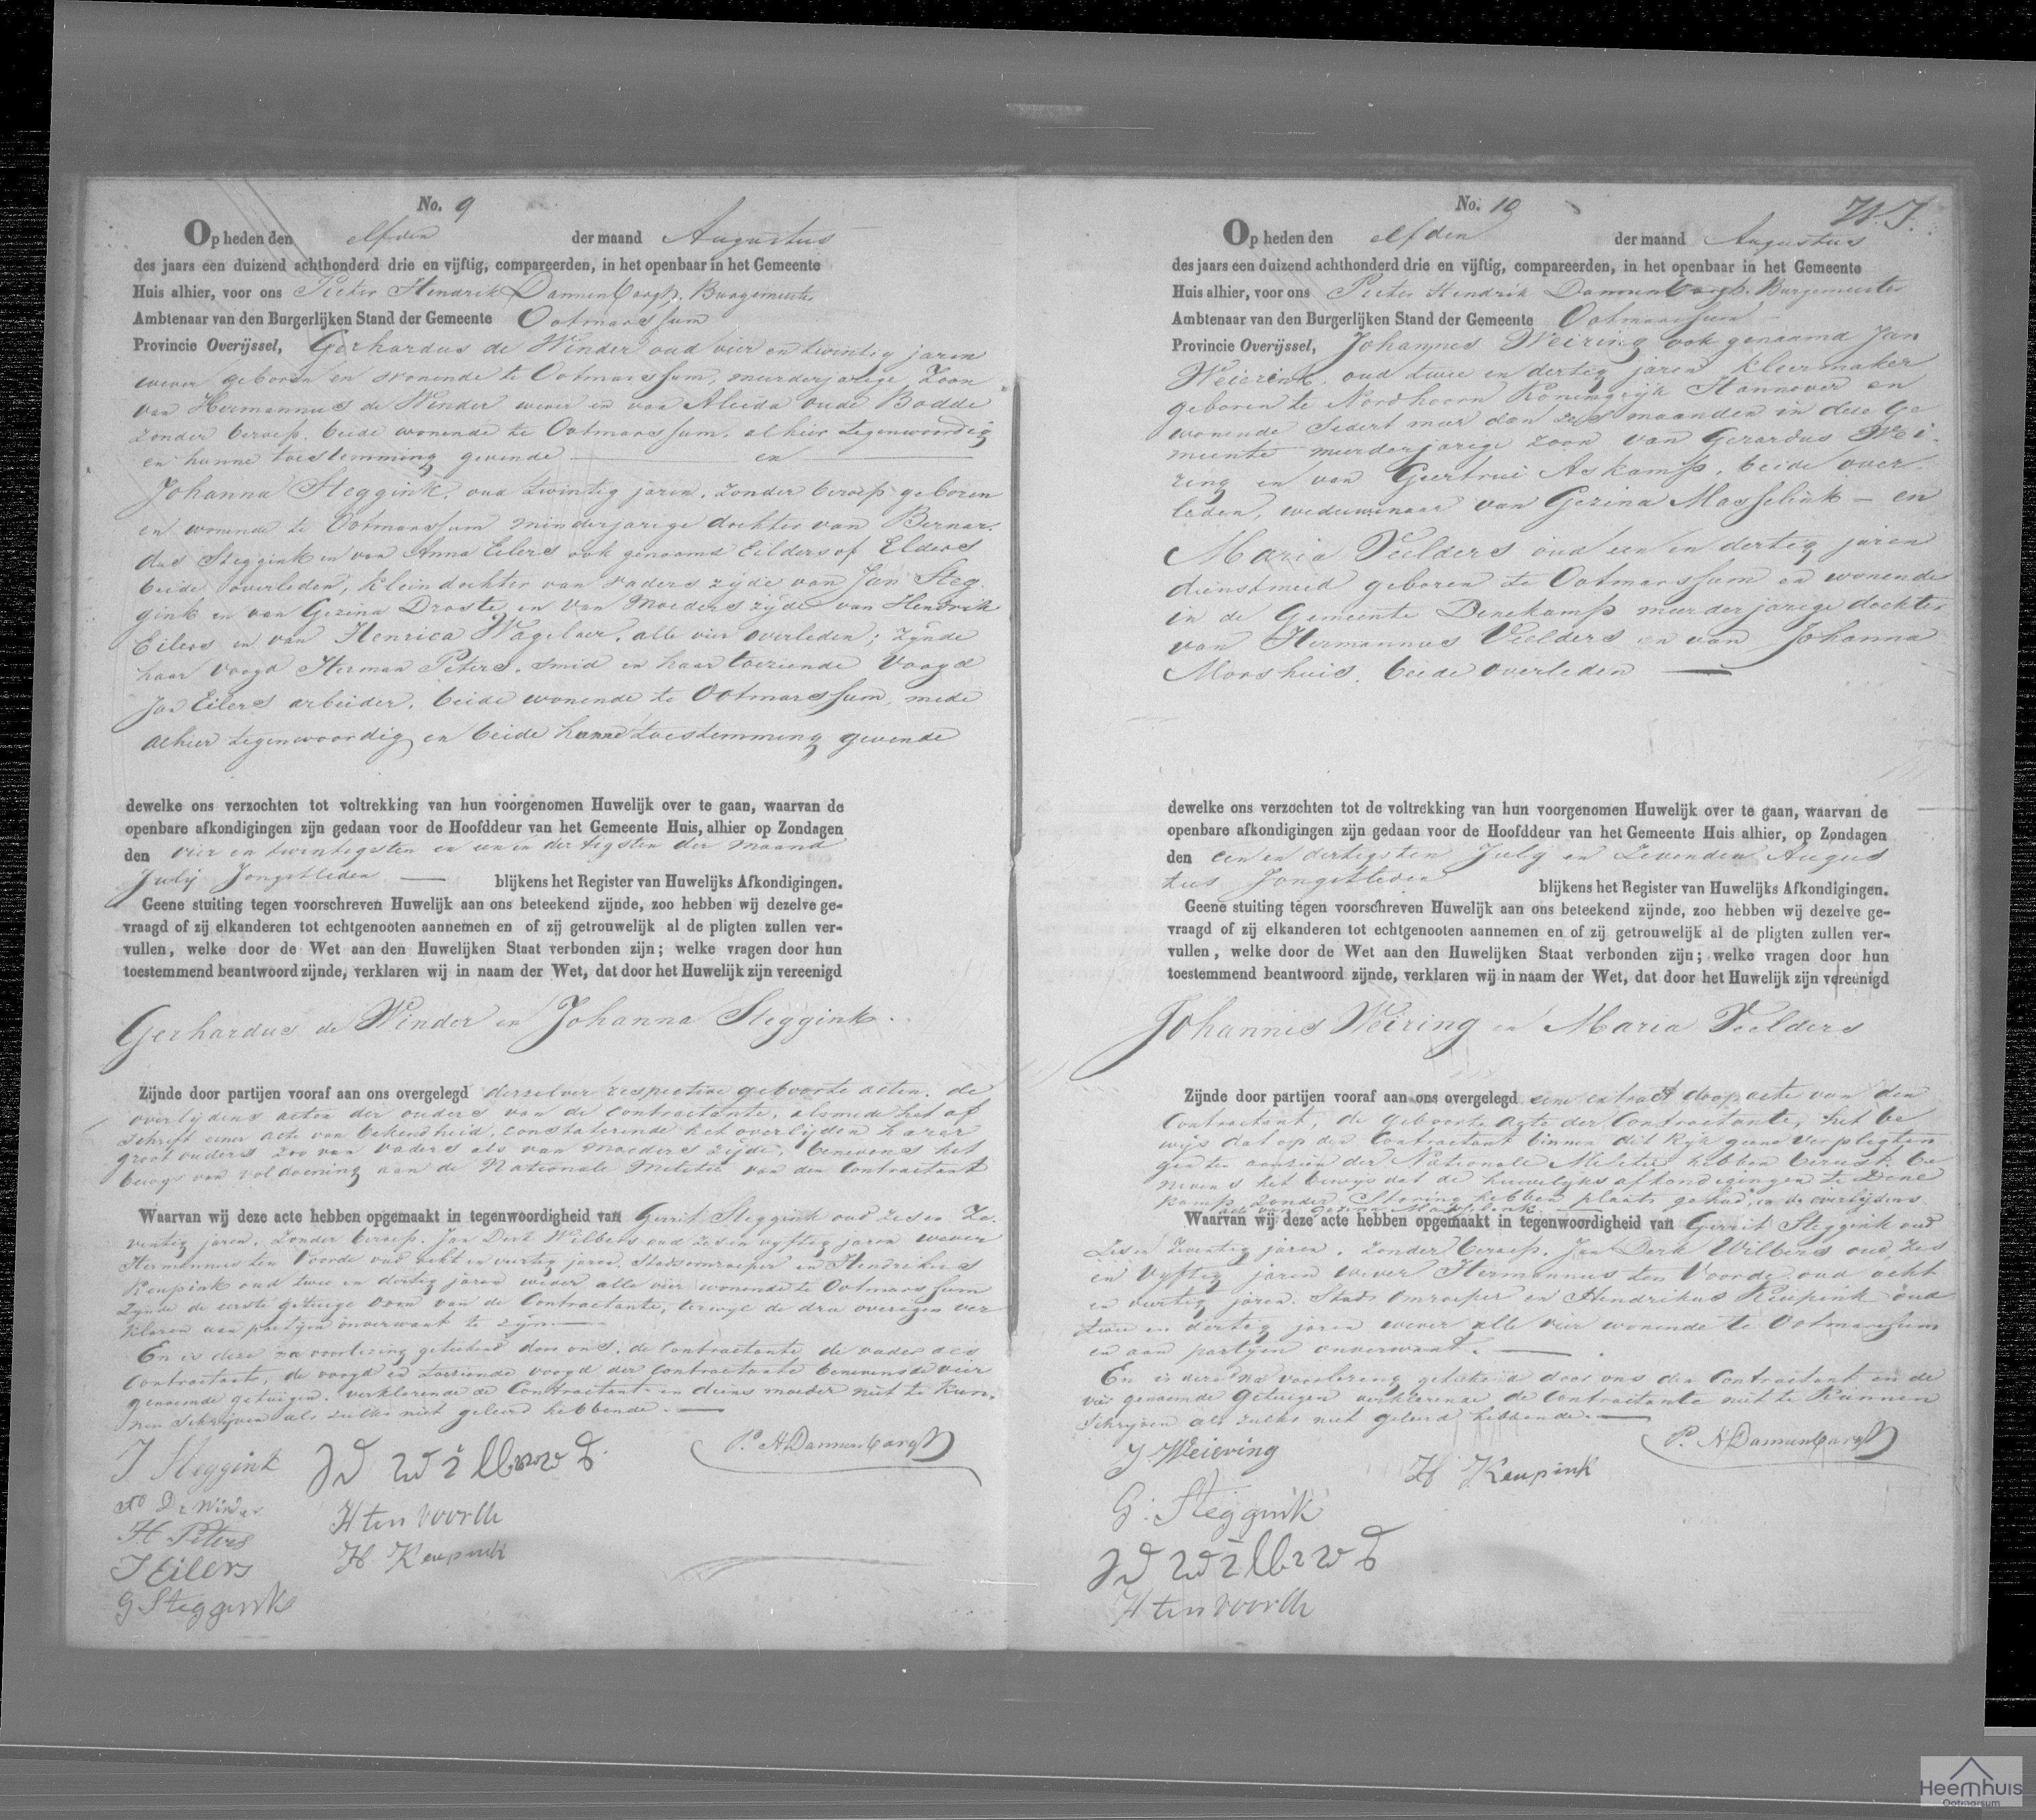 No. 9
Op heden den elfden der maand Augustus
des jaars een duizend achthonderd drie en vijftig, compareerden, in het openbaar in het Gemeente
Huis alhier, voor ons Pieter Hendrik Dannenbargh, Burgemeester
Ambtenaar van den Burgerlijken Stand der Gemeente Ootmarssum
Provincie Overijssel, Gerhardus de Winder oud vier en twintig jaren
wever geboren en wonende te Ootmarssum, meerderjarige Zoon
van Hermannus de Winder wever en van Aleida oude Bodde
zonder beroep, beide wonende te Ootmarssum, alhier tegenwoordig
en hunne toestemming gevende — en —
Johanna Steggink, oud twintig jaren, zonder beroep geboren
en wonende te Ootmarssum minderjarige dochter van Bernar-
dus Steggink en van Anna Eilers ook genaamd Eilders of Elders
beide overleden, kleindochter van vaders zijde van Jan Steg-
gink en van Gezina Droste en van Moeders zijde van Hendrik
Eilers en van Henrica Wagelaer, alle vier overleden; zijnde
haar voogd Herman Peters, smid en haar toeziende Voogd
Jan Eilers arbeider, beide wonende te Ootmarssum, mede
alhier tegenwoordig en beide hunne toestemming gevende
dewelke ons verzochten tot voltrekking van hun voorgenomen Huwelijk over te gaan, waarvan de
openbare afkondigingen zijn gedaan voor de Hoofddeur van het Gemeente Huis, alhier op Zondagen
den vier en twintigsten en een en dertigsten der maand
July Jongstleden — blijkens het Register van Huwelijks Afkondigingen.
Geene stuiting tegen voorschreven Huwelijk aan ons beteekend zijnde, zoo hebben wij dezelve ge-
vraagd of zij elkanderen tot echtgenooten aannemen en of zij getrouwelijk al de pligten zullen ver-
vullen, welke door de Wet aan den Huwelijken Staat verbonden zijn; welke vragen door hun
toestemmend beantwoord zijnde, verklaren wij in naam der Wet, dat door het Huwelijk zijn vereenigd
Gerhardus de Winder en Johanna Steggink.
Zijnde door partijen vooraf aan ons overgelegd derzelver respective geboorte acten, de
overlijdens acten der ouders van de contractante, alsmede het af
schrift eener acte van bekendheid, constaterende het overlijden harer
grootouders zoo van vaders als van moeders zijde, benevens het
bewijs van voldoening aan de Nationale Militie van den Contractant
Waarvan wij deze acte hebben opgemaakt in tegenwoordigheid van Gerrit Steggink oud zes en Ze-
ventig jaren, zonder beroep, Jan Derk Wilbers oud zes en vijftig jaren wever
Hermannus ten Voorde oud acht en veertig jaren, Stadsomroeper en Hendrikus
Keupink oud twee en dertig jaren wever alle vier wonende te Ootmarssum
Zijnde de eerste getuige Oom van de Contractante, terwijl de drie overigen ver
klaren aan partijen onverwant te zijn. —
En is deze na voorlezing geteekend door ons, de Contractante de vader des
Contractant, de voogd en toeziende voogd der contractante benevens de vier
genoemde getuigen, verklarende de Contractant en diens moeder niet te kun-
nen Schrijven als zulks niet geleerd hebbende. —
J Steggink
JD Wilbers
P. H Dannenbargh
De Winder
H ten Voorde
H. Peters
H Keupink
J Eilers
G Steggink
No. 10
W.J.
Op heden den elfden der maand Augustus
des jaars een duizend achthonderd drie en vijftig, compareerden, in het openbaar in het Gemeente
Huis alhier, voor ons Pieter Hendrik Dannenbargh, Burgemeester
Ambtenaar van den Burgerlijken Stand der Gemeente Ootmarssum
Provincie Overijssel, Johannes Weiring ook genaamd Jan
Weierink, oud twee en dertig jaren kleermaker
geboren te Nordhoorn Koningrijk Hannover en
wonende sedert meer dan zes maanden in deze Ge
meente meerderjarige zoon van Gerardus Wei-
ring en van Geertrui Askamp, beide over-
leden, weduwenaar van Gezina Masselink — en
Maria Veelders oud een en dertig jaren
dienstmeid geboren te Ootmarssum en wonende
in de Gemeente Denekamp meerderjarige dochter
van Hermannus Veelders en van Johanna
Morshuis, beide overleden —
dewelke ons verzochten tot de voltrekking van hun voorgenomen Huwelijk over te gaan, waarvan de
openbare afkondigingen zijn gedaan voor de Hoofddeur van het Gemeente Huis alhier, op Zondagen
den een en dertigsten July en Zevenden Augus
tus Jongstleden blijkens het Register van Huwelijks Afkondigingen.
Geene stuiting tegen voorschreven Huwelijk aan ons beteekend zijnde, zoo hebben wij dezelve ge-
vraagd of zij elkanderen tot echtgenooten aannemen en of zij getrouwelijk al de pligten zullen ver-
vullen, welke door de Wet aan den Huwelijken Staat verbonden zijn; welke vragen door hun
toestemmend beantwoord zijnde, verklaren wij in naam der Wet, dat door het Huwelijk zijn vereenigd
Johannes Weiring en Maria Veelders
Zijnde door partijen vooraf aan ons overgelegd een extract doopacte van den
Contractant, de geboorte acte der Contractante, het be
wijs dat op den Contractant binnen dit Rijk geene verpligten
gen ten aanzien der Nationale Militie hebben berust, be
nevens het bewijs dat de huwelijks afkondigingen te Dene
kamp zonder Storing hebben plaats gehad, en de overlijdens
acte van Gezina Masselink.
Waarvan wij deze acte hebben opgemaakt in tegenwoordigheid van Gerrit Steggink oud
Zes en Zeventig jaren, zonder beroep, Jan Derk Wilbers oud zes
en vyftig jaren wever Hermannus ten Voorde oud acht
en veertig jaren, Stads Omroeper en Hendrikus Keupink oud
twee en dertig jaren wever alle vier wonende te Ootmarssum
en aan partijen onverwant. —
En is deze na voorlezing geteekend door ons den Contractant en de
vier genoemde getuigen verklarende de contractante niet te kunnen
Schrijven als zulks niet geleerd hebbende. —
J. Weiering
P. H Dannenbargh
H Keupink
G. Steggink
JD Wilbers
H ten Voorde
Heemhuis
Ootmarsum